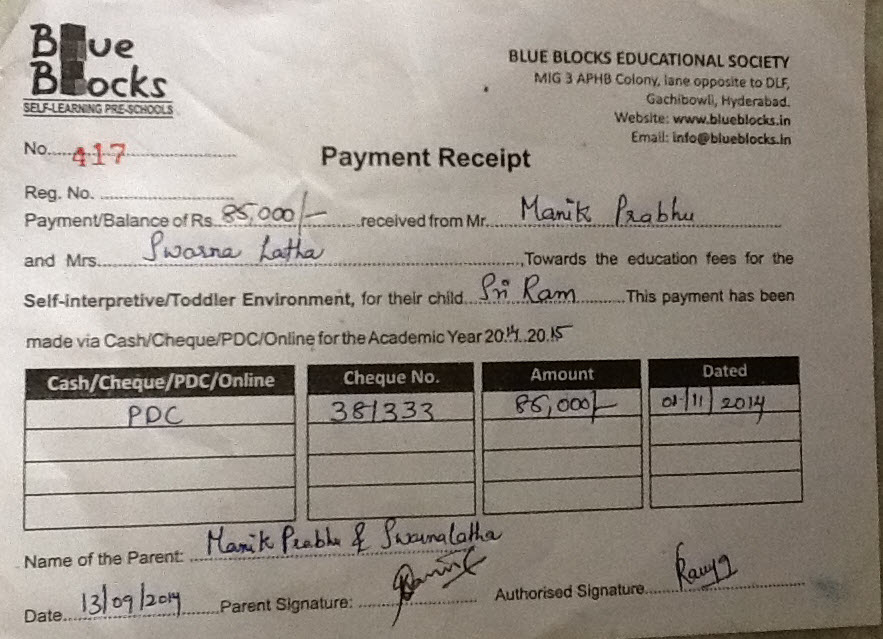 Blue
Blocks
SELF-LEARNING PRE-SCHOOLS
BLUE BLOCKS EDUCATIONAL SOCIETY
MIG 3 APHB Colony, lane opposite to DLF,
Gachibowli, Hyderabad.
Website: www.blueblocks.in
Email: info@blueblocks.in
No. 417
Payment Receipt
Reg. No.
Payment/Balance of Rs. 85,000/- received from Mr. Manik Prabhu
and Mrs. Swarna Latha, Towards the education fees for the
Self-interpretive/Toddler Environment, for their child Sri Ram. This payment has been
made via Cash/Cheque/PDC/Online for the Academic Year 2014.2015
Cash/Cheque/PDC/Online Cheque No. Amount Dated
PDC 381333 85,000/- 01/11/2014
Name of the Parent: Manik Prabhu & Swarnalatha
Date 13/09/2014 Parent Signature: Authorised Signature